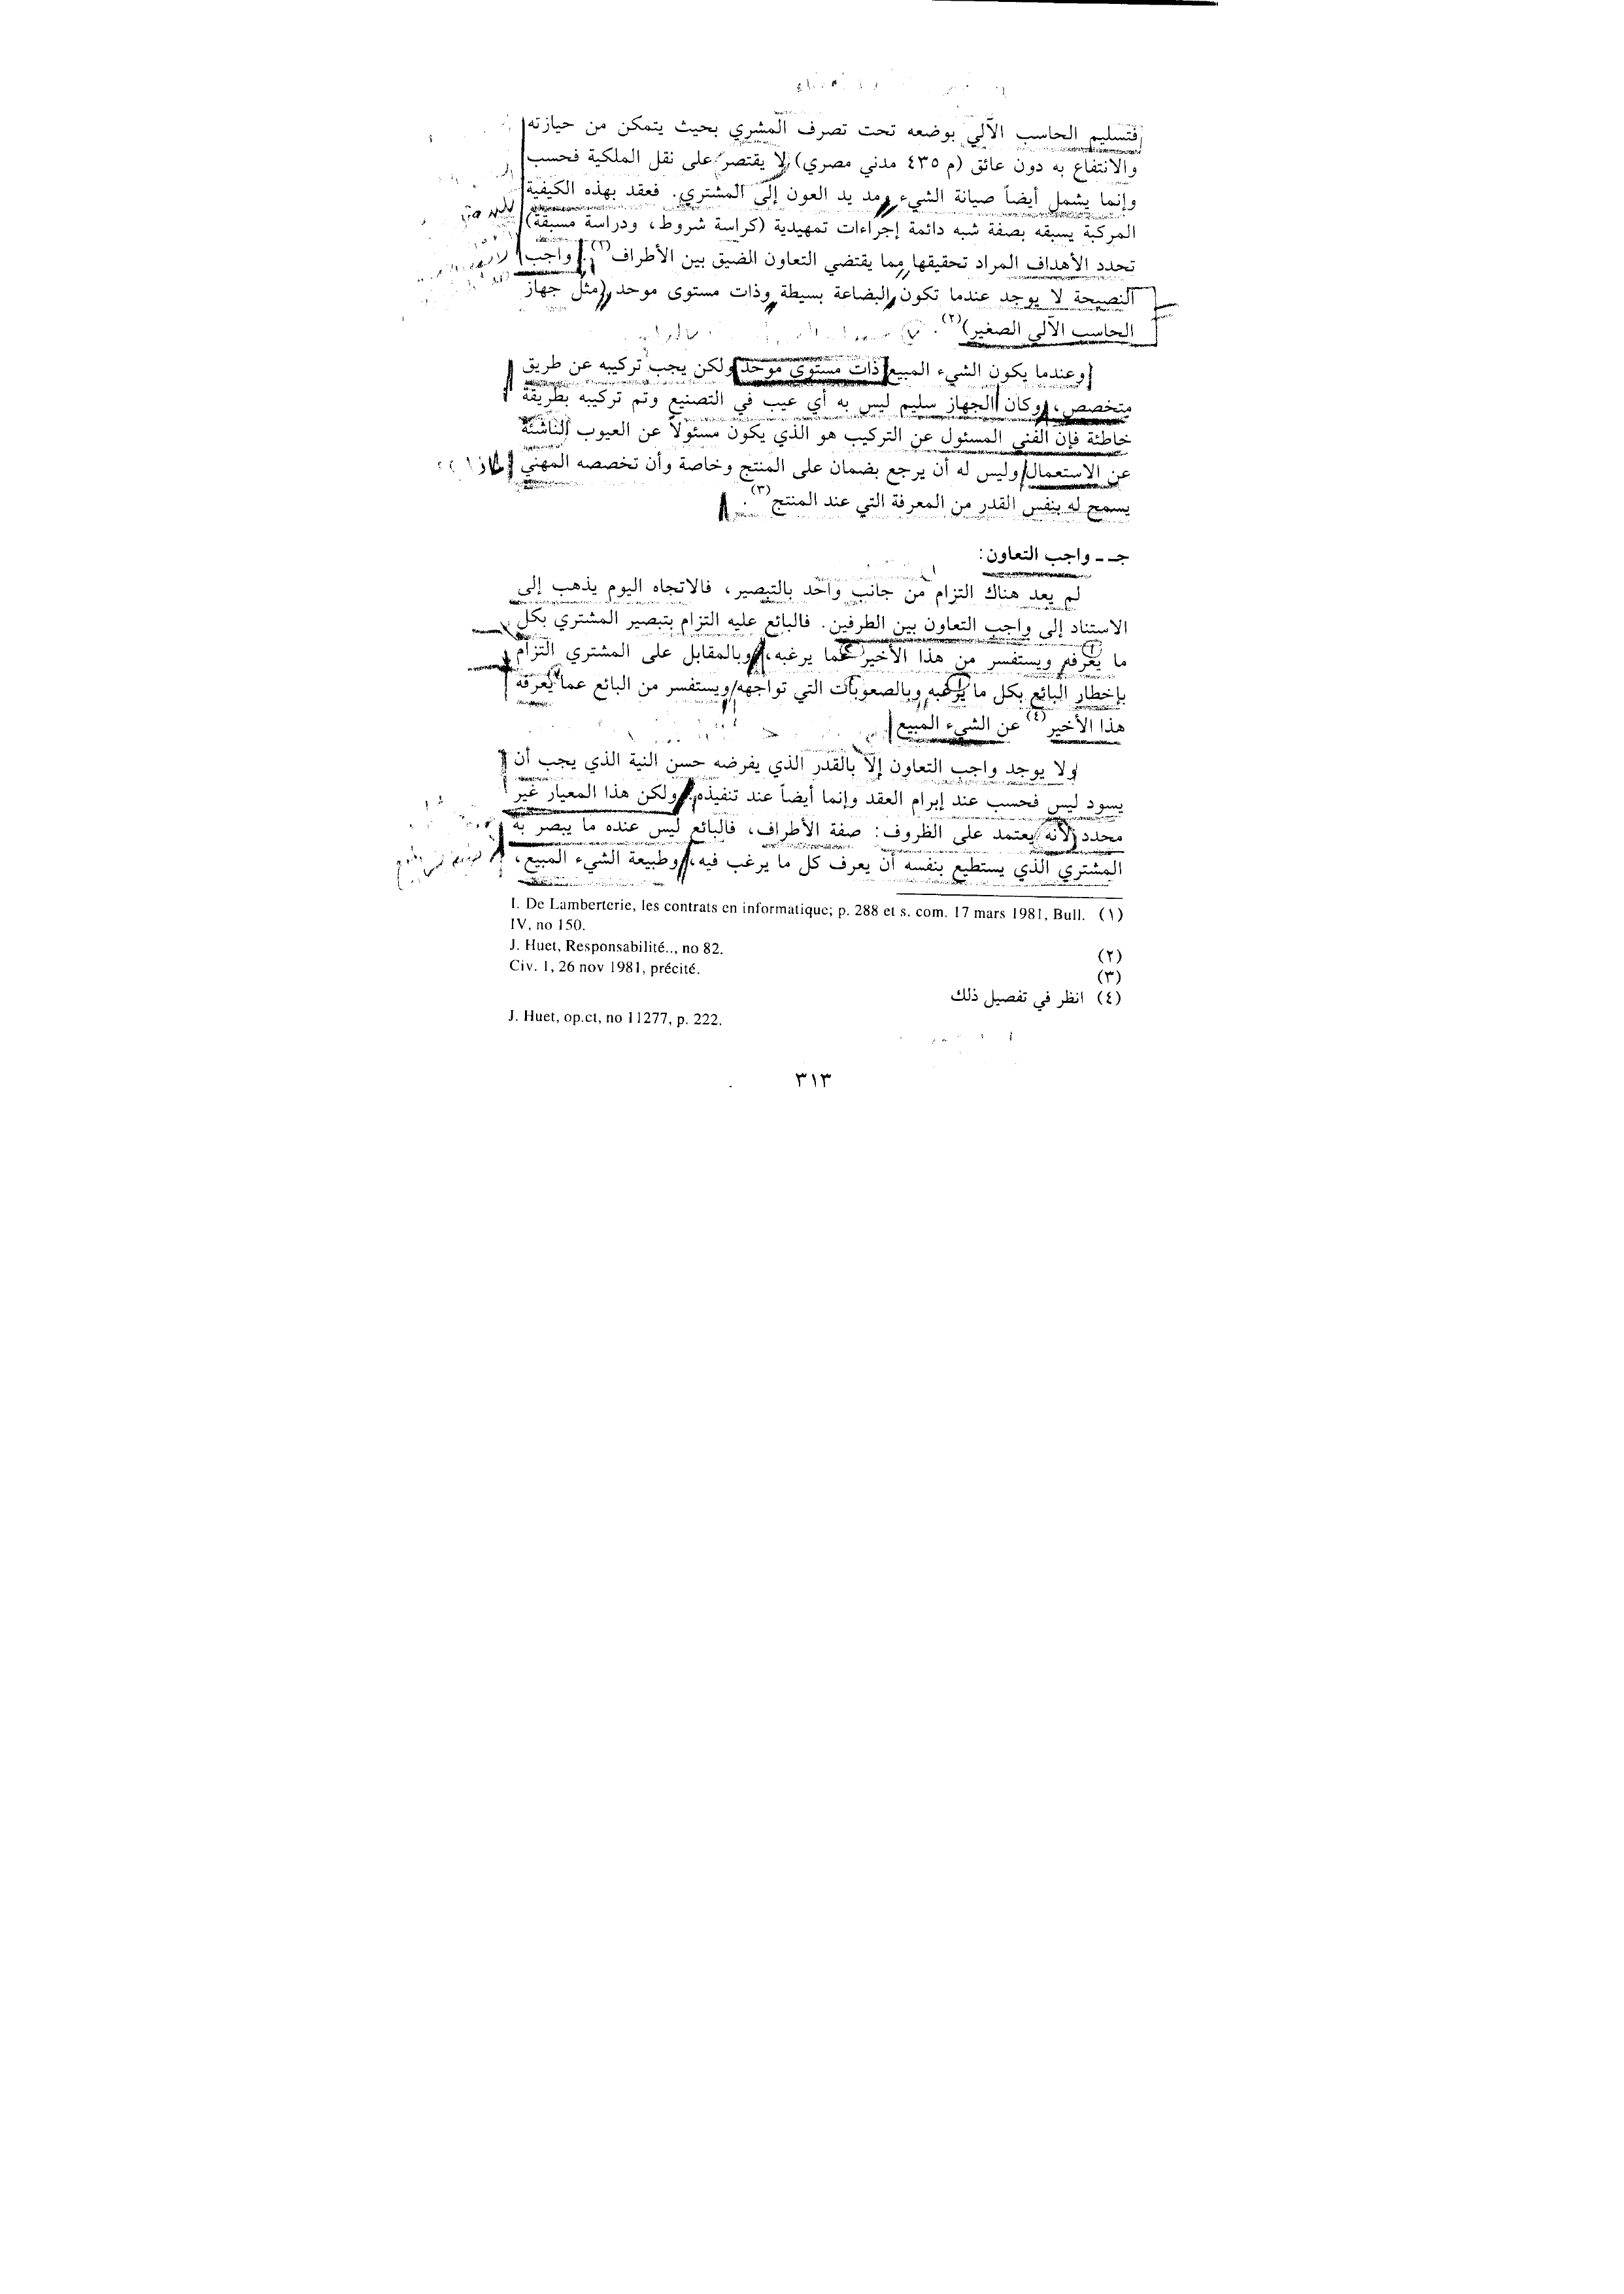 فتسليم الحاسب الآلي بوضعه تحت تصرف المشري بحيث يتمكن من حيازته
والانتفاع به دون عائق (م ٤٣٥ مدني مصري) لا يقتصر على نقل الملكية فحسب
وإنما يشمل أيضاً صيانة الشيء ومد يد العون إلى المشتري. فعقد بهذه الكيفية
المركبة يسبقه بصفة شبه دائمة إجراءات تمهيدية (كراسة شروط، ودراسة مسبقة)
تحدد الأهداف المراد تحقيقها مما يقتضي التعاون الضيق بين الأطراف(١). وواجب
النصيحة لا يوجد عندما تكون البضاعة بسيطة وذات مستوى موحد (مثل جهاز
الحاسب الآلي الصغير)(٢).
وعندما يكون الشيء المبيع ذات مستوى موحد ولكن يجب تركيبه عن طريق
متخصص، وكان الجهاز سليم ليس به أي عيب في التصنيع وتم تركيبه بطريقة
خاطئة فإن الفني المسئول عن التركيب هو الذي يكون مسئولاً عن العيوب الناشئة
عن الاستعمال وليس له أن يرجع بضمان على المنتج وخاصة وأن تخصصه المهني
يسمح له بنفس القدر من المعرفة التي عند المنتج(٣).
جـ ـ واجب التعاون:
لم يعد هناك التزام من جانب واحد بالتبصير، فالاتجاه اليوم يذهب إلى
الاستناد إلى واجب التعاون بين الطرفين. فالبائع عليه التزام بتبصير المشتري بكل
ما يعرفه ويستفسر من هذا الأخير عما يرغبه، وبالمقابل على المشتري التزام
بإخطار البائع بكل ما يرغبه وبالصعوبات التي تواجهه ويستفسر من البائع عما يعرفه
هذا الأخير(٤) عن الشيء المبيع
ولا يوجد واجب التعاون إلاّ بالقدر الذي يفرضه حسن النية الذي يجب أن
يسود ليس فحسب عند إبرام العقد وإنما أيضاً عند تنفيذه. ولكن هذا المعيار غير
محدد لأنه يعتمد على الظروف: صفة الأطراف، فالبائع ليس عنده ما يبصر به
المشتري الذي يستطيع بنفسه أن يعرف كل ما يرغب فيه، وطبيعة الشيء المبيع،
(١) I. De Lamberterie, les contrats en informatique; p. 288 et s. com. 17 mars 1981, Bull.
IV, no 150.
(٢) J. Huet, Responsabilité.., no 82.
(٣) Civ. 1, 26 nov 1981, précité.
(٤) انظر في تفصيل ذلك
J. Huet, op.ct, no 11277, p. 222.
٣١٣